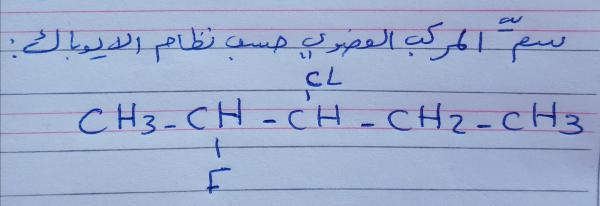 سمّ المركب العضوي حسب نظام الايوباك:
CL
CH3-CH-CH-CH2-CH3
F